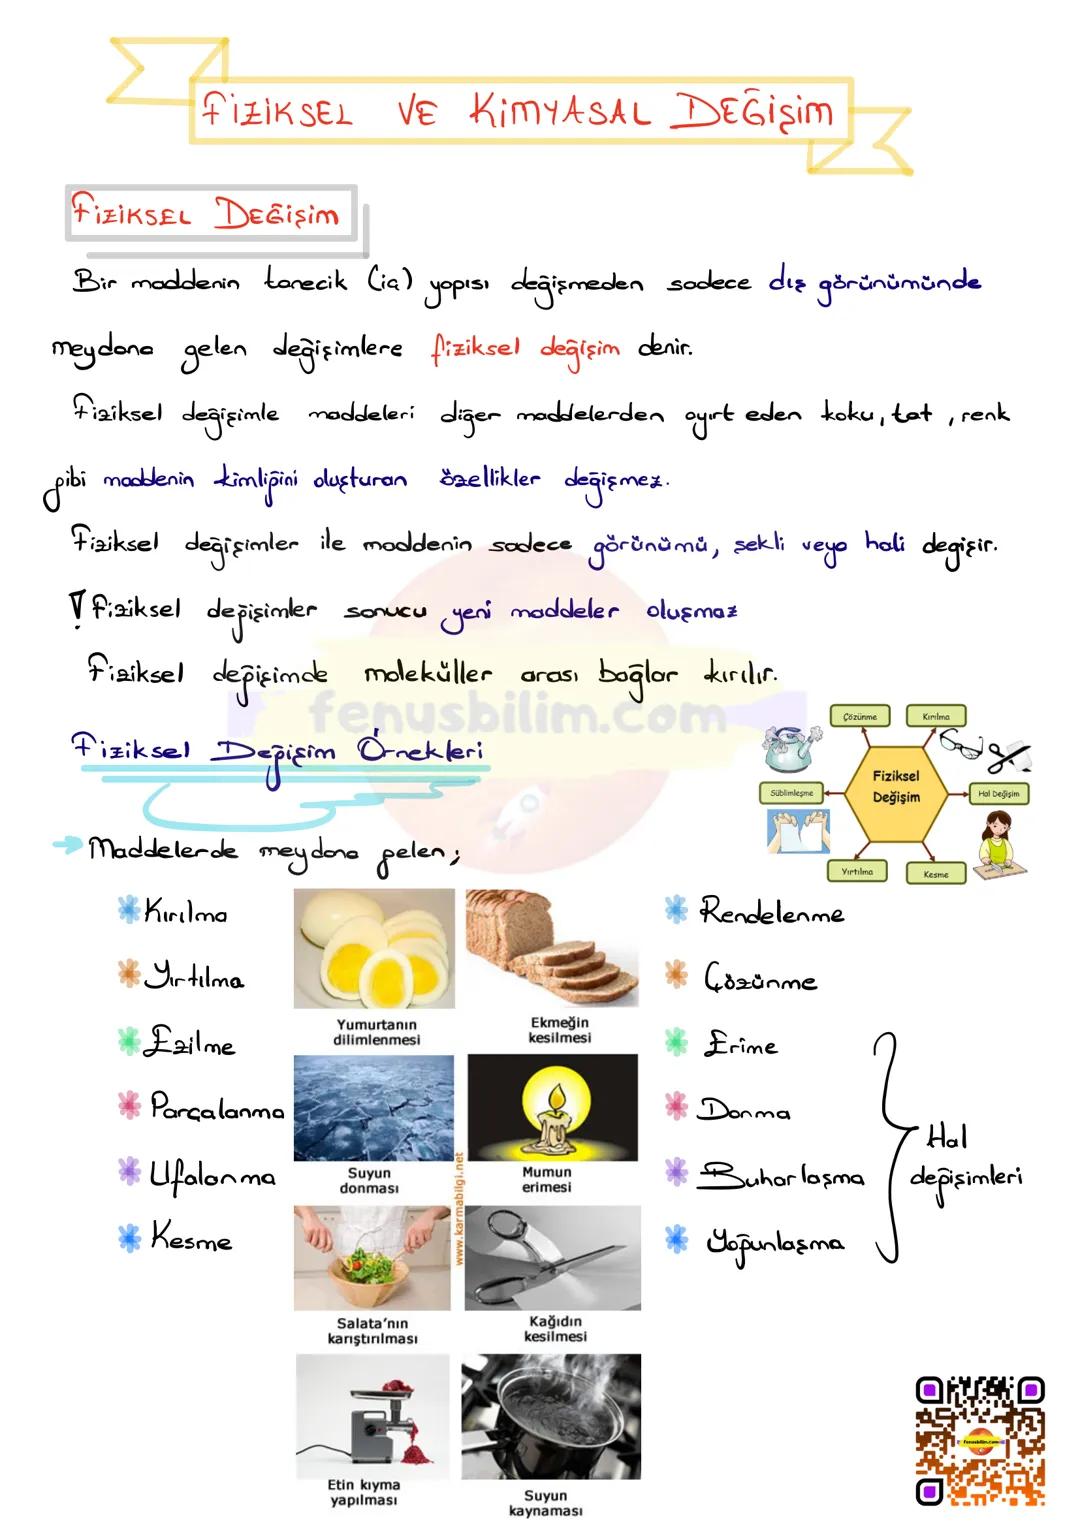 FİZİKSEL VE KİMYASAL DEĞİŞİM
FİZİKSEL DEĞİŞİM
Bir maddenin tanecik (iç) yapısı değişmeden sadece dış görünümünde
meydana gelen değişimlere fiziksel değişim denir.
Fiziksel değişimle maddeleri diğer maddelerden ayırt eden koku, tat, renk
gibi maddenin kimliğini oluşturan özellikler değişmez.
Fiziksel değişimler ile maddenin sadece görünümü, şekli veya hali değişir.
! Fiziksel değişimler sonucu yeni maddeler oluşmaz
Fiziksel değişimde moleküller arası bağlar kırılır.
fenusbilim.com
Fiziksel Değişim Örnekleri
Çözünme
Kırılma
Fiziksel
Değişim
Süblimleşme
Hal Değişim
Yırtılma
Kesme
Maddelerde meydana gelen;
Kırılma
Yırtılma
Ezilme
Parçalanma
Ufalanma
Kesme
Yumurtanın
dilimlenmesi
Ekmeğin
kesilmesi
Suyun
donması
Mumun
erimesi
www.karmabilgi.net
Salata'nın
karıştırılması
Kağıdın
kesilmesi
Etin kıyma
yapılması
Suyun
kaynaması
Rendelenme
Çözünme
Erime
Donma
Buharlaşma
Yoğunlaşma
Hal
değişimleri
fenusbilim.com